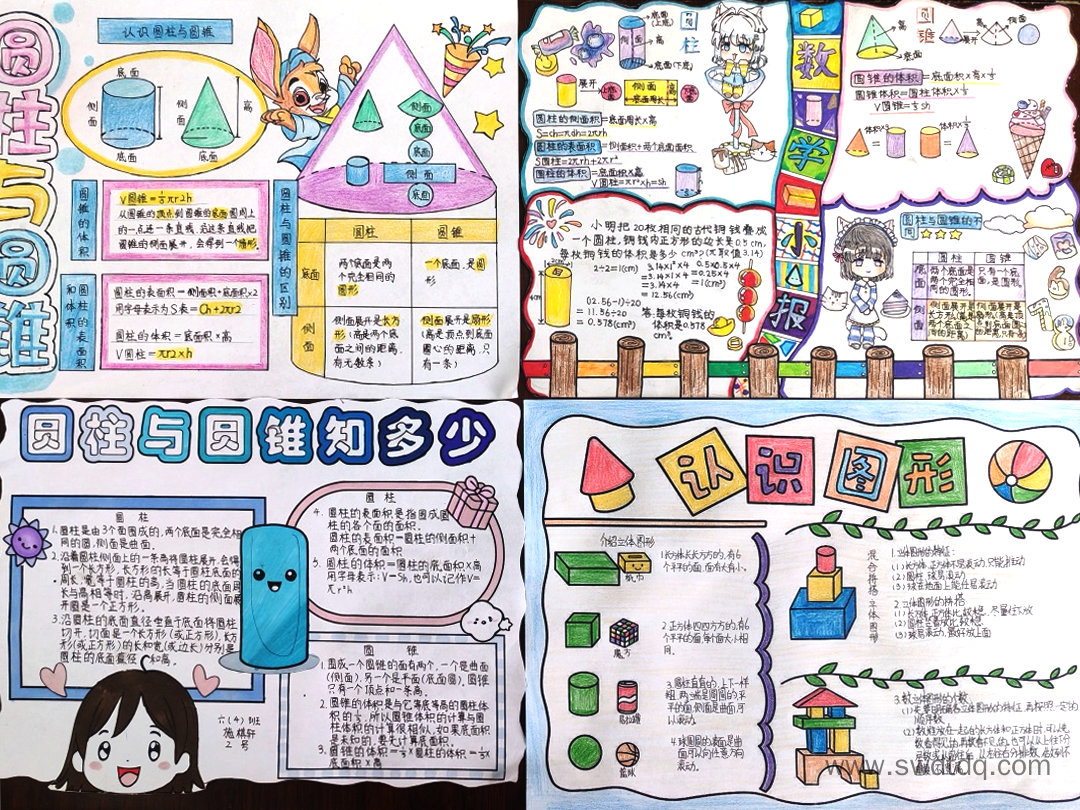 圆柱与圆锥
认识圆柱与圆锥
底面
侧面
底面
侧面
高
底面
侧面
底面
底面
侧面
底面
圆锥的体积
V圆锥=⅓πr2h
从圆锥的顶点到圆锥的底面圆周上
的一点连一条直线,沿这条直线把
圆锥的侧面展开,会得到一个扇形.
圆柱的表面积
和体积
圆柱的表面积=侧面积+底面积×2
用字母表示为S表=Ch+2πr2
圆柱的体积=底面积×高
V圆柱=πr2×h
圆柱与圆锥的区别
圆柱
圆锥
底面
两个底面是两
个完全相同的
圆形
一个底面,是圆
形
侧面
侧面展开是长方
形(高是两个底
面之间的距离,
有无数条)
侧面展开是扇形
(高是顶点到底面
圆心的距离,只
有一条)
数学小报
圆柱
底面(上底)
侧面
高
底面(下底)
展开
上底面
侧面
高
底面周长
下底面
圆柱的侧面积=底面周长×高
S=ch=πdh=2πrh
圆柱的表面积=侧面积+两个底面面积
S圆柱=2πrh+2πr²
圆柱的体积=底面积×高
V圆柱=πr²×h=sh
圆锥
高
底面
展开
侧面
圆锥的体积=底面积×高×⅓
圆锥体积=圆柱体积×⅓
V圆锥=⅓sh
体积×3
体积×⅓
小明把20枚相同的古代铜钱叠成
一个圆柱,铜钱内正方形的边长是0.5cm,
每枚铜钱的体积是多少cm³?(π取值3.14)
2cm
4cm
2÷2=1(cm)
3.14×1²×4
=3.14×1×4
=12.56(cm³)
0.5×0.5×4
=0.25×4
=1(cm³)
(12.56-1)÷20
=11.56÷20
=0.578(cm³)
答:每枚铜钱的
体积是0.578
cm³.
圆柱与圆锥的不
同
圆柱
圆锥
底面
两个底面是
两个完全相
同的圆形
只有一个底
面,是圆形
侧面
圆柱与圆锥知多少
圆柱
1.圆柱是由3个面围成的,两个底面是完全相
同的圆,侧面是曲面.
2.沿着圆柱侧面上的一条高将圆柱展开,会得
到一个长方形,长方形的长等于圆柱底面的
周长,宽等于圆柱的高,当圆柱的底面周
长与高相等时,沿高展开,圆柱的侧面展
开图是一个正方形.
3.沿圆柱的底面直径垂直于底面将圆柱
切开,切面是一个长方形(或正方形),长方
形(或正方形)的长和宽(或边长)分别是
圆柱的底面直径和高.
圆柱
4.圆柱的表面积是指围成圆
柱的各个面的面积.
圆柱的表面积=圆柱的侧面积+
两个底面的面积
5.圆柱的体积=圆柱的底面积×高
用字母表示:V=Sh,也可以记作V=
πr²h
圆锥
1.围成一个圆锥的面有两个,一个是曲面
(侧面),另一个是平面(底面圆),圆锥
只有一个顶点和一条高.
2.圆锥的体积是与它等底等高的圆柱体
积的⅓,所以圆锥体积的计算与圆
柱体积的计算很相似,如果底面积
是未知的,要先计算底面积.
3.圆锥的体积=⅓×圆柱的体积=⅓×
底面积×高
六(4)班
施棋轩
2号
认识图形
介绍立体图形
1.长方体长长方方的,有6
个平平的面,面有大有小.
纸巾
2.正方体四四方方的,有6
个平平的面,每个面大小相
同.
魔方
3.圆柱直直的,上下一样
粗,两端是圆圆的平
平的面,侧面是曲面,可
以滚动.
易拉罐
4.球圆圆的,表面是曲
面,可以向任意方向
滚动.
篮球
1.立体图形的特征:
2.立体图形的拼搭
www.swdtdq.com